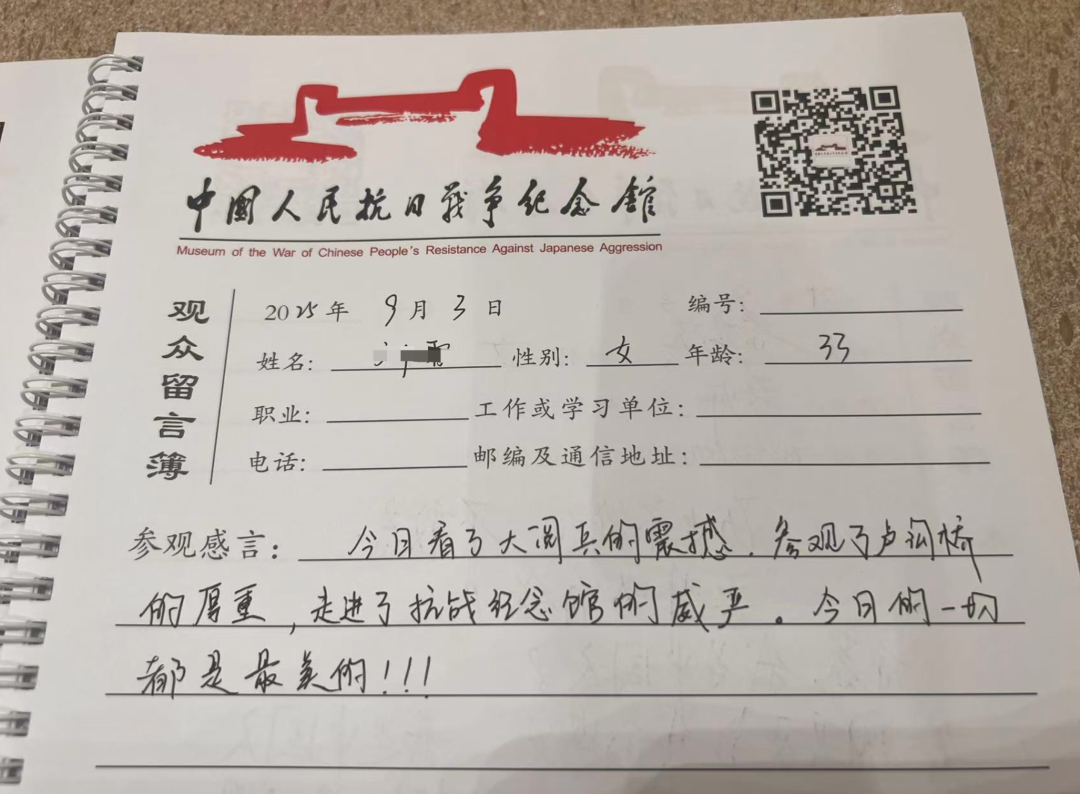 中国人民抗日战争纪念馆
Museum of the War of Chinese People's Resistance Against Japanese Aggression
观众留言簿
2025年 9月3日 编号:
姓名: 性别: 女 年龄: 33
职业: 工作或学习单位:
电话: 邮编及通信地址:
参观感言: 今日看了大阅兵的震撼，参观了卢沟桥
的厚重，走进了抗战纪念馆的威严。今日的一切
都是最美的!!!